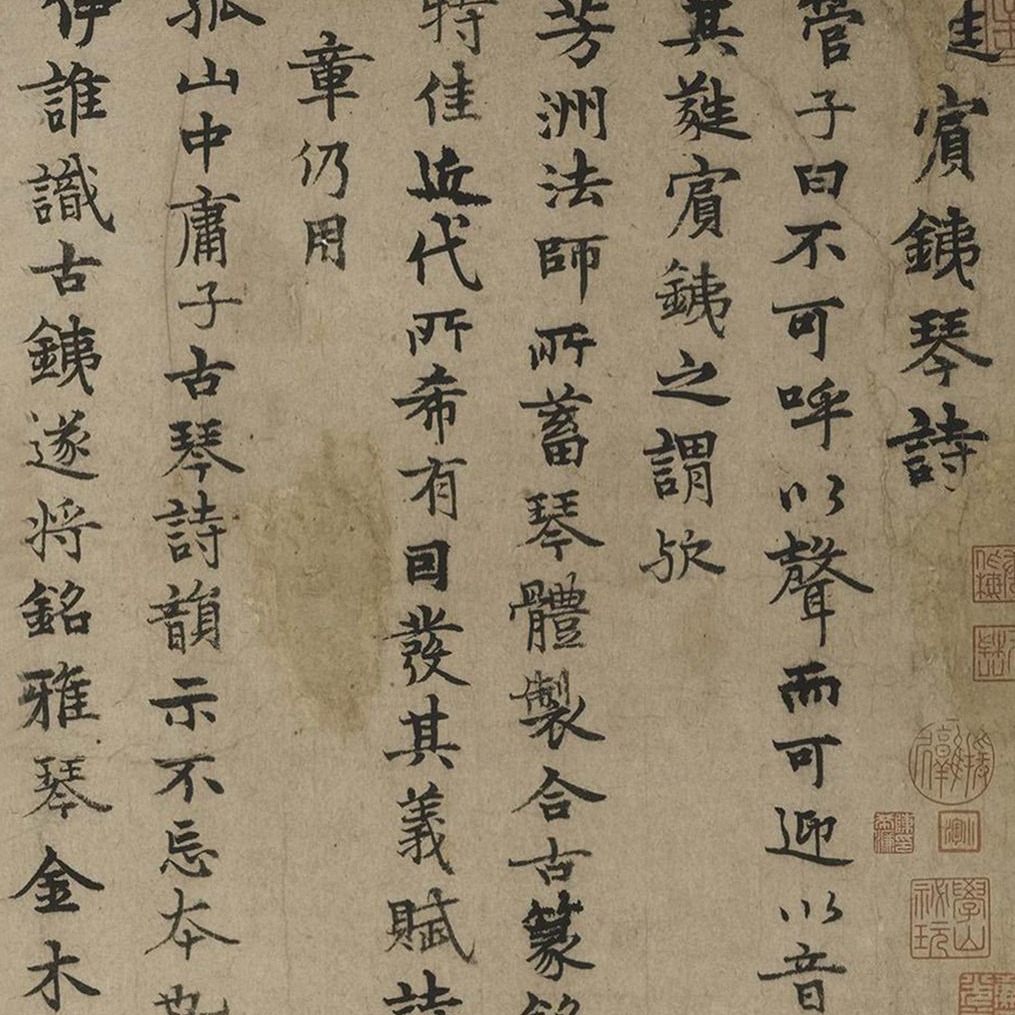 賓銕琴詩
管子曰不可呼以聲而可迎以音
其蕤賓銕之謂欤
芳洲法師所蓄琴體製合古篆銘
特佳近代所希有囙發其義賦詩
章仍用
孤山中庸子古琴詩韻示不忘本也
伊誰識古銕遂将銘雅琴金木
學山祕玩